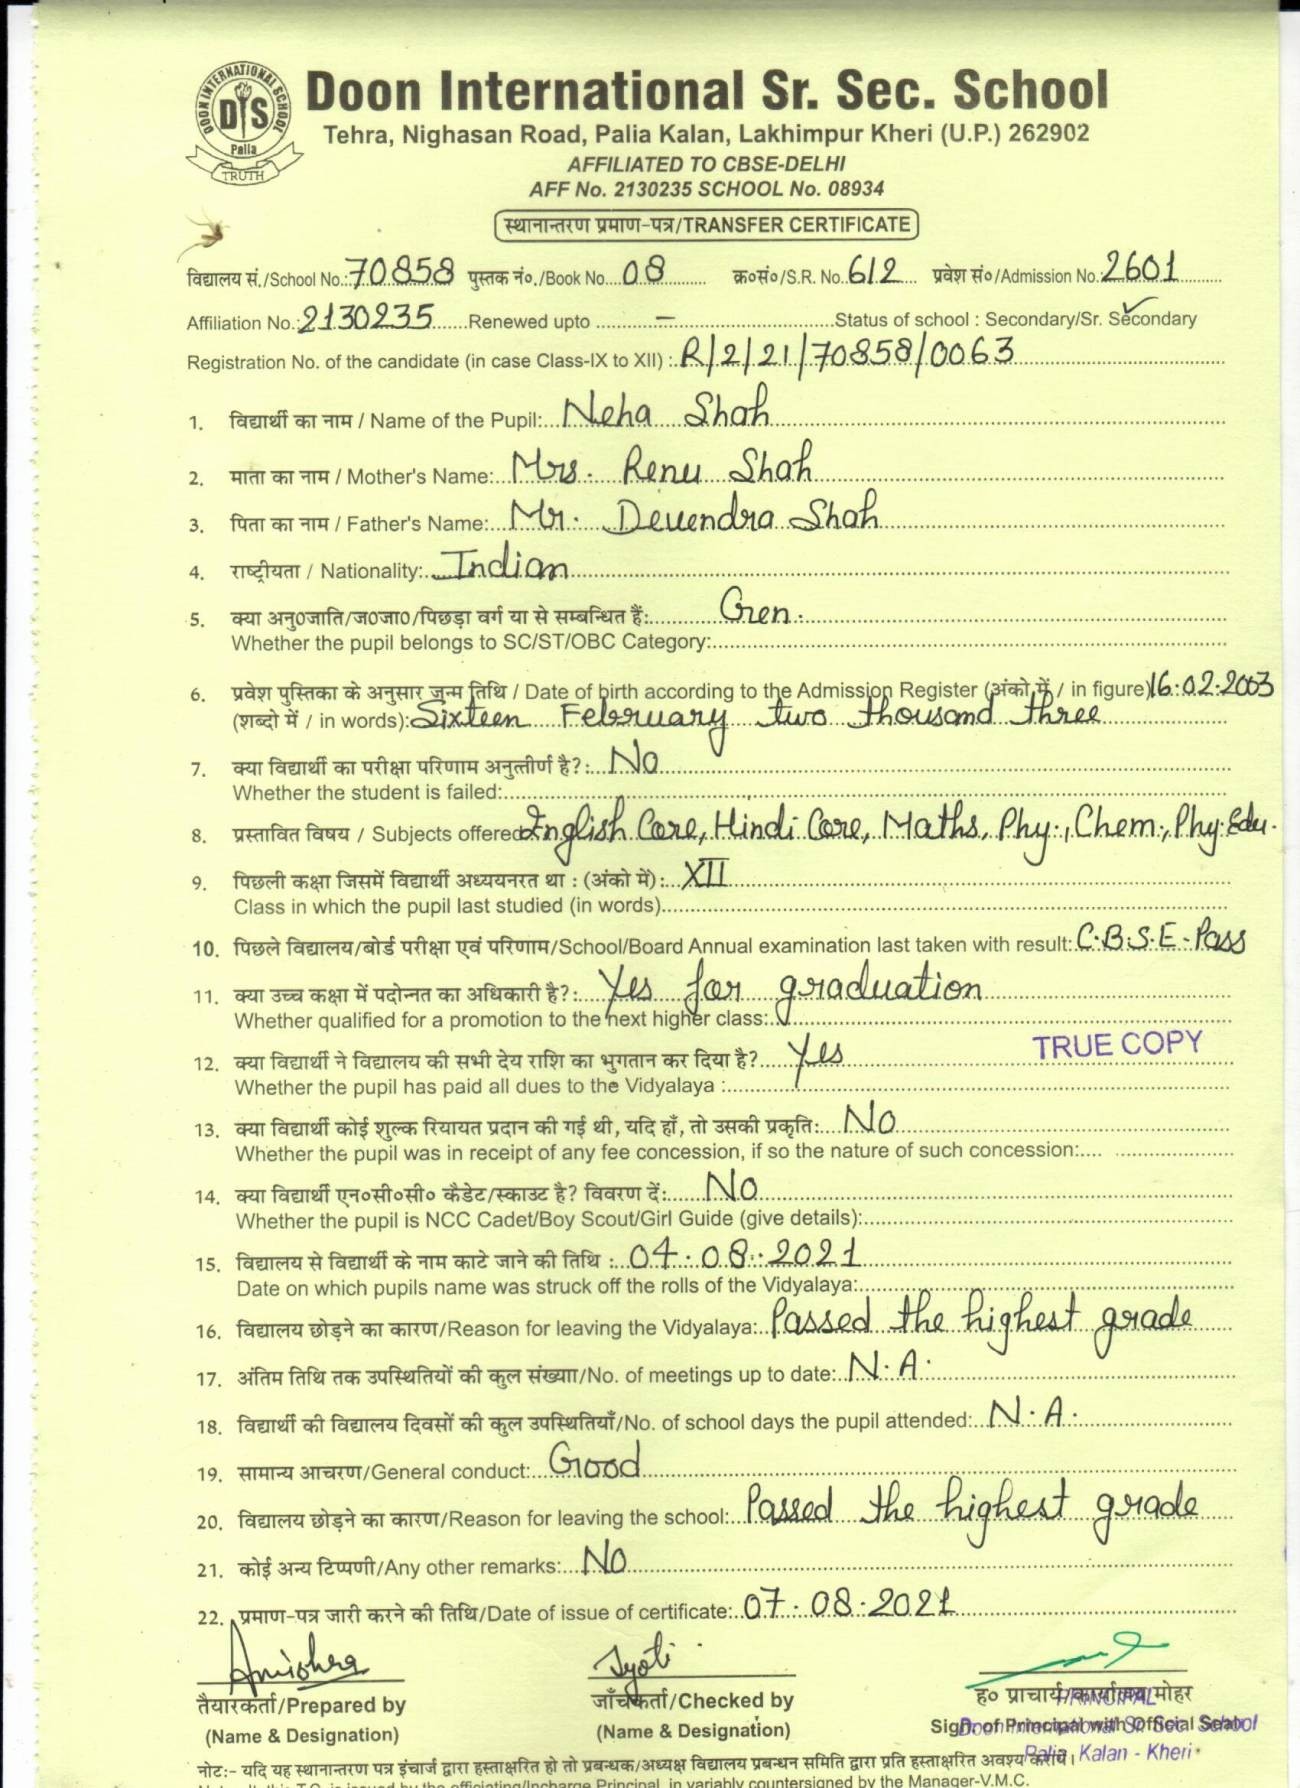 DOON INTERNATIONAL SCHOOL
DIS
Palia
TRUTH
Doon International Sr. Sec. School
Tehra, Nighasan Road, Palia Kalan, Lakhimpur Kheri (U.P.) 262902
AFFILIATED TO CBSE-DELHI
AFF No. 2130235 SCHOOL No. 08934
स्थानान्तरण प्रमाण-पत्र/TRANSFER CERTIFICATE
विद्यालय सं./School No.: 70858 पुस्तक नं०./Book No. 08 क्र०सं०/S.R. No. 612 प्रवेश सं०/Admission No. 2601
Affiliation No.: 2130235 Renewed upto – Status of school : Secondary/Sr. Secondary
Registration No. of the candidate (in case Class-IX to XII) : R/2/21/70858/0063
1. विद्यार्थी का नाम / Name of the Pupil: Neha Shah
2. माता का नाम / Mother's Name: Mrs. Renu Shah
3. पिता का नाम / Father's Name: Mr. Devendra Shah
4. राष्ट्रीयता / Nationality: Indian
5. क्या अनु०जाति/ज०जा०/पिछड़ा वर्ग या से सम्बन्धित हैं: Gen.
Whether the pupil belongs to SC/ST/OBC Category:
6. प्रवेश पुस्तिका के अनुसार जन्म तिथि / Date of birth according to the Admission Register (अंको में / in figure) 16.02.2003
(शब्दो में / in words): Sixteen February two thousand three
7. क्या विद्यार्थी का परीक्षा परिणाम अनुत्तीर्ण है?: No
Whether the student is failed:
8. प्रस्तावित विषय / Subjects offered English Core, Hindi Core, Maths, Phy., Chem., Phy. Edu.
9. पिछली कक्षा जिसमें विद्यार्थी अध्ययनरत था : (अंको में): XII
Class in which the pupil last studied (in words)
10. पिछले विद्यालय/बोर्ड परीक्षा एवं परिणाम/School/Board Annual examination last taken with result: C.B.S.E - Pass
11. क्या उच्च कक्षा में पदोन्नत का अधिकारी है?: Yes for graduation
Whether qualified for a promotion to the next higher class:
TRUE COPY
12. क्या विद्यार्थी ने विद्यालय की सभी देय राशि का भुगतान कर दिया है? Yes
Whether the pupil has paid all dues to the Vidyalaya :
13. क्या विद्यार्थी कोई शुल्क रियायत प्रदान की गई थी, यदि हाँ, तो उसकी प्रकृति: No
Whether the pupil was in receipt of any fee concession, if so the nature of such concession:
14. क्या विद्यार्थी एन०सी०सी० कैडेट/स्काउट है? विवरण दें: No
Whether the pupil is NCC Cadet/Boy Scout/Girl Guide (give details):
15. विद्यालय से विद्यार्थी के नाम काटे जाने की तिथि : 04.08.2021
Date on which pupils name was struck off the rolls of the Vidyalaya:
16. विद्यालय छोड़ने का कारण/Reason for leaving the Vidyalaya: Passed the highest grade
17. अंतिम तिथि तक उपस्थितियों की कुल संख्याा/No. of meetings up to date: N.A.
18. विद्यार्थी की विद्यालय दिवसों की कुल उपस्थितियाँ/No. of school days the pupil attended: N.A.
19. सामान्य आचरण/General conduct: Good
20. विद्यालय छोड़ने का कारण/Reason for leaving the school: Passed the highest grade
21. कोई अन्य टिप्पणी/Any other remarks: No
22. प्रमाण-पत्र जारी करने की तिथि/Date of issue of certificate: 07.08.2021
Jyoti
तैयारकर्ता/Prepared by जाँचकर्ता/Checked by ह० प्राचार्य कार्यालय मोहर
PRINCIPAL
(Name & Designation) (Name & Designation) Sign. of Principal with Official Seal
Doon International Sr. Sec. School
Palia Kalan - Kheri
नोट:- यदि यह स्थानान्तरण पत्र इंचार्ज द्वारा हस्ताक्षरित हो तो प्रबन्धक/अध्यक्ष विद्यालय प्रबन्धन समिति द्वारा प्रति हस्ताक्षरित अवश्य करायें।
Note:- If this T.C. is issued by the officiating/Incharge Principal, in variably countersigned by the Manager-V.M.C.